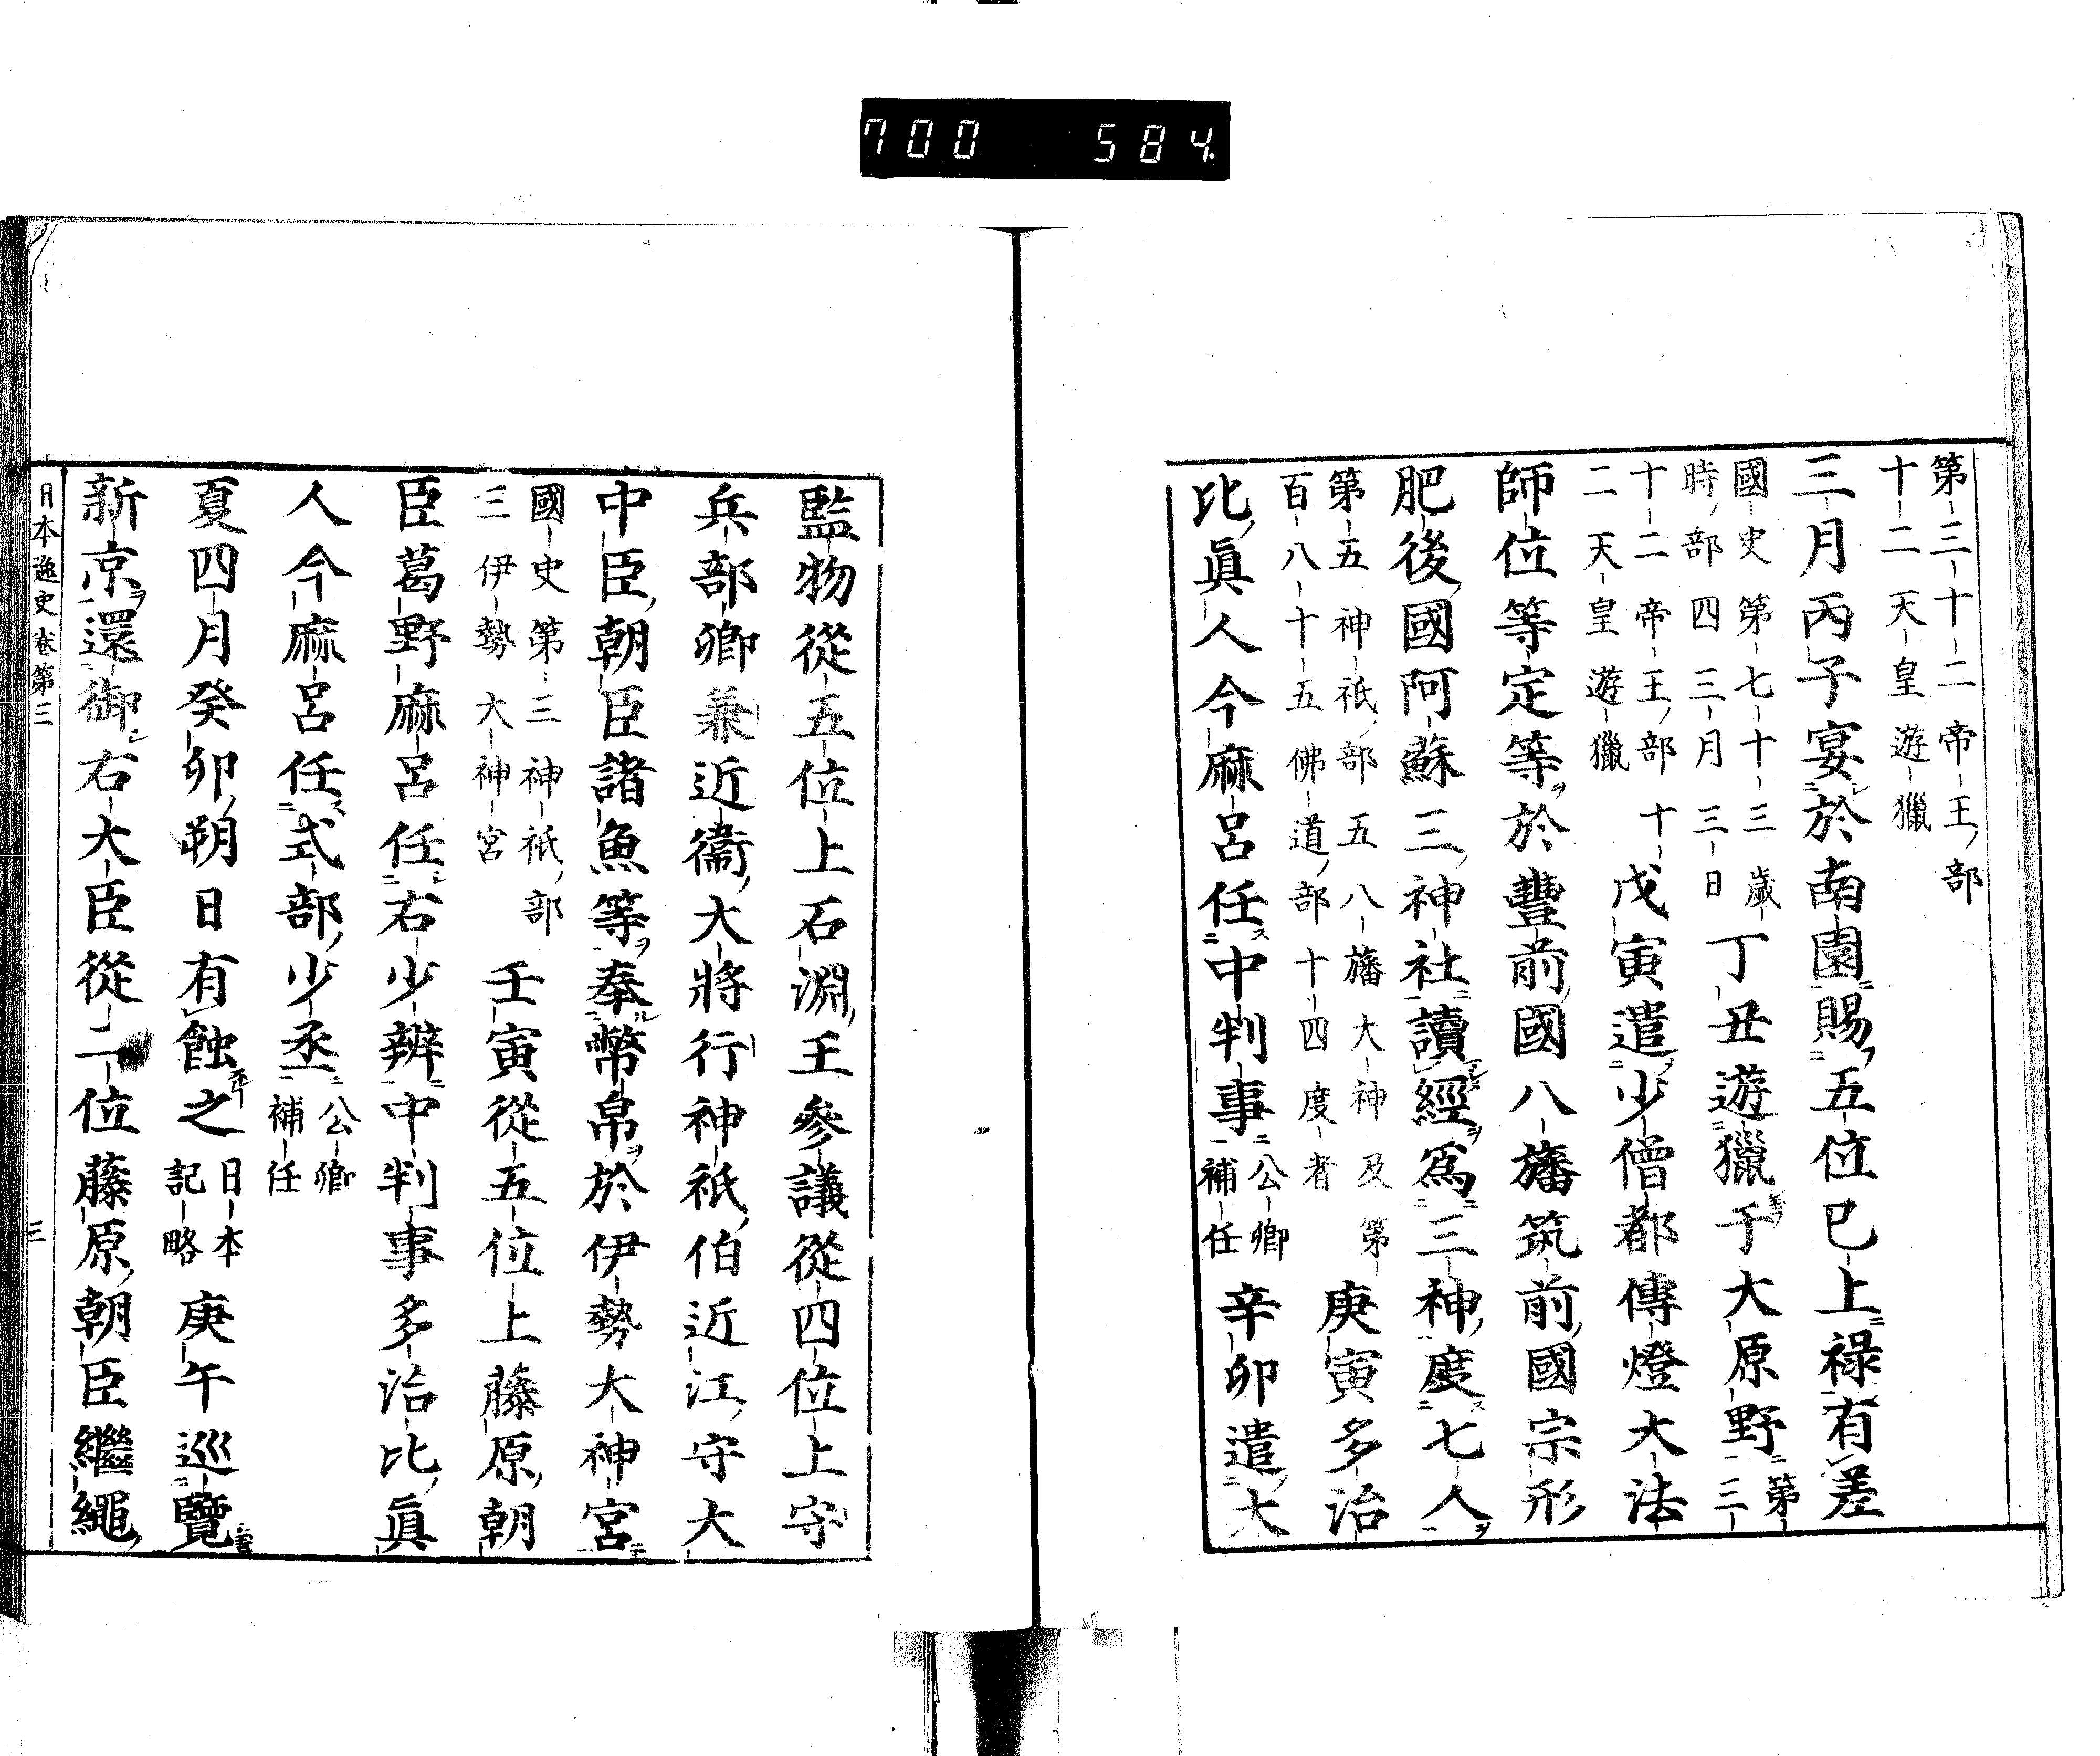 700 584
第三十二帝王部
十二天皇遊獵
三月丙子宴於南園賜五位已上祿有差
國史第七十三歲
時部四三月三日
丁丑遊獵于大原野
第三
十二帝王部十
二天皇遊獵
戊寅遣少僧都傳燈大法
師位等定等於豐前國八旛筑前國宗形
肥後國阿蘇三神社讀經爲三神度七人
第五神祇部五八旛大神及第
百八十五佛道部十四度者
庚寅多治
比眞人今麻呂任中判事
公卿
補任
辛卯遣大
監物從五位上石淵王參議從四位上守
兵部卿兼近衞大將行神祇伯近江守大
中臣朝臣諸魚等奉幣帛於伊勢大神宮
國史第三神祇部
三伊勢大神宮
壬寅從五位上藤原朝
臣葛野麻呂任右少辨中判事多治比眞
人今麻呂任式部少丞
公卿
補任
夏四月癸卯朔日有蝕之
日本
記略
庚午巡覽
新京還御右大臣從二位藤原朝臣繼繩
日本逸史卷第三
三